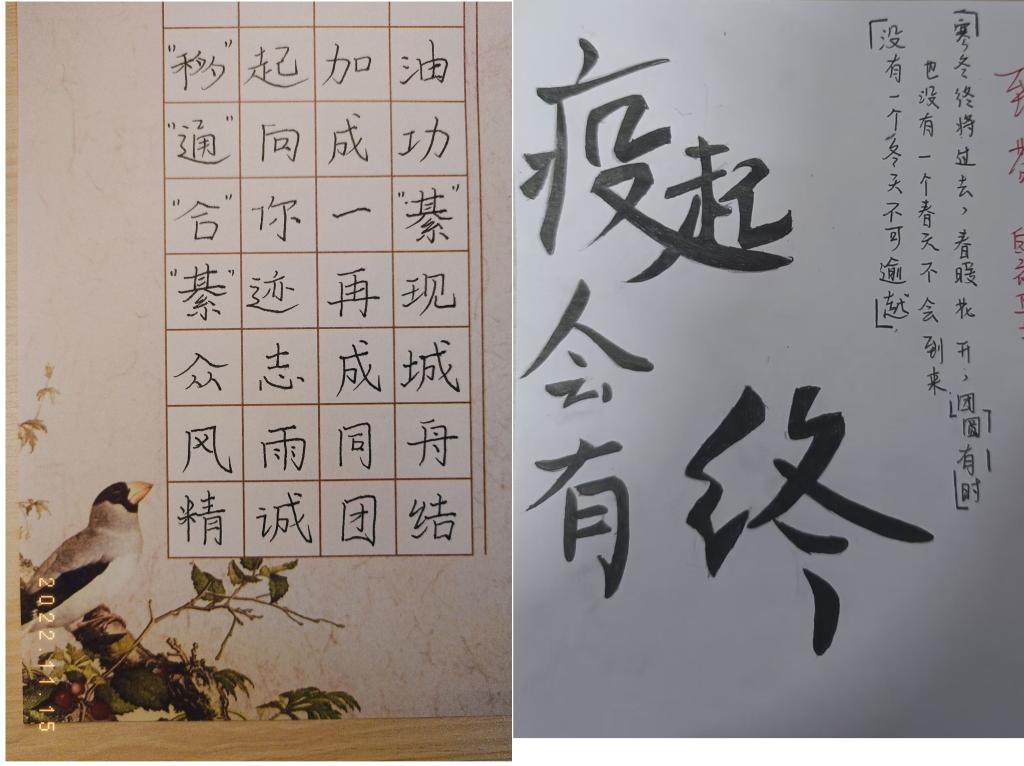 "移"起加油
"通"向成功
"合"你一"綦"
"綦"迹再现
众志成城
风雨同舟
精诚团结
2022.11.15
疫起
会有
终
「没有一个冬天不可逾越」.
也没有一个春天不会到来
「寒冬终将过去，春暖花开，「团圆有时」